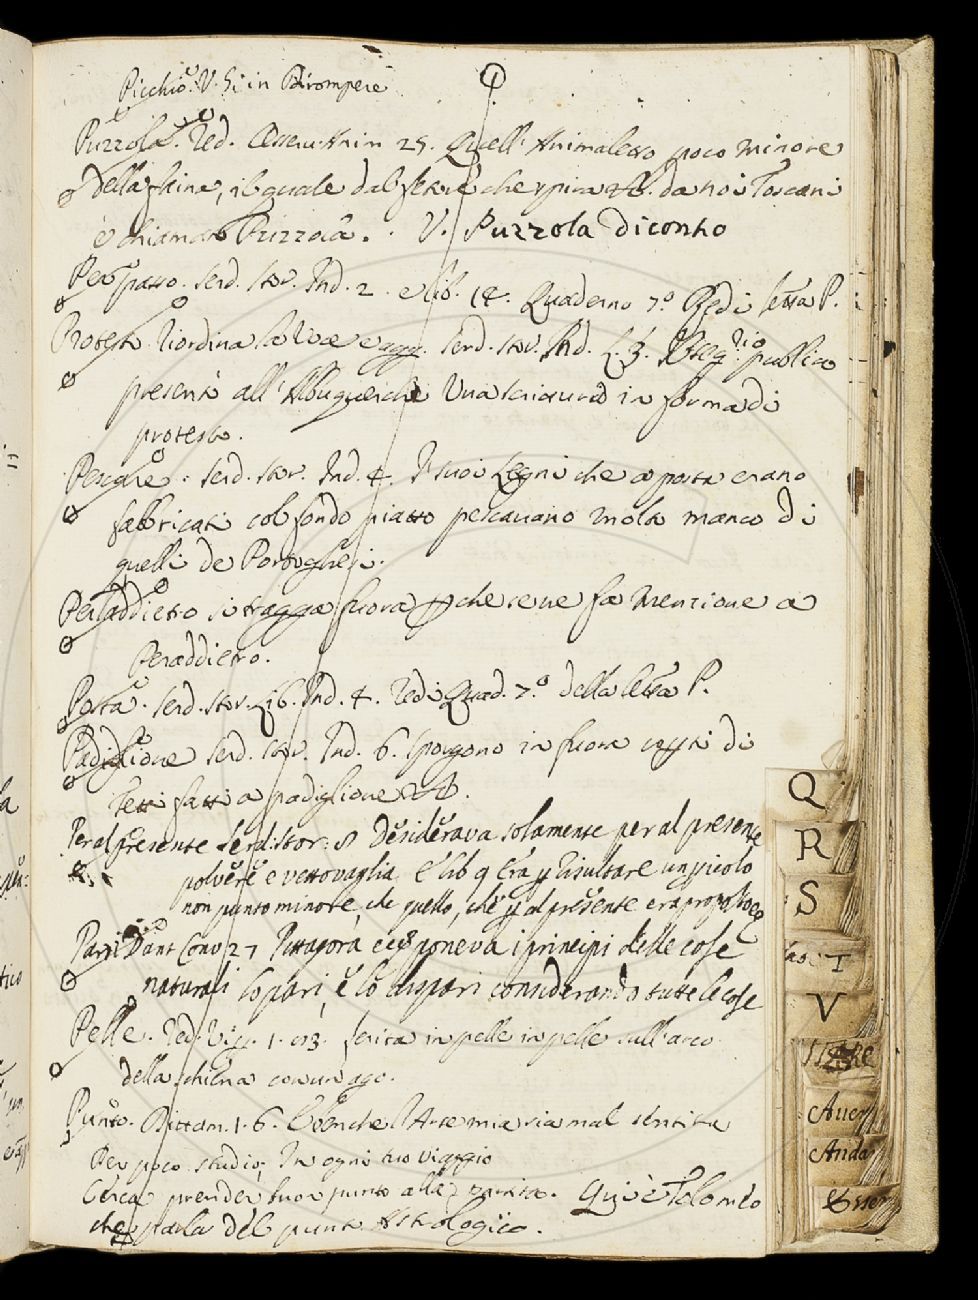 Picchio. V. Si in Dirompere
Puzzola. Red. Osservaz. Anim 25. Quell' Animaletto poco minore
della faina, il quale dal fetore che spira &c. da noi Toscani
è chiamato Puzzola. V. Puzzola di conto
Per passo. Serd. Stor. Ind. 2. e lib. 14. Quaderno 7.º Redi lettra P.
Protesto Serd. Stor. Ind. L. 3. publico
presentò all' Albuquerche una scrittura in forma di
protesto.
Pescare. Serd. Stor. Ind. 4. I suoi Legni che a posta erano
fabbricati col fondo piatto pescavano molto manco di
quelli de Portoghesi.
Peraddietro si tragga fuora che se ne fa menzione a
Peraddietro.
Posta. Serd. Stor. Lib. Ind. 4. Redi Quad. 7.º della lettra P.
Padiglione Serd. Stor. Ind. 6. sporgono in fuora certi di
Tetti fatti a padiglione &c.
Per al presente Serd. Stor: 8 Desiderava solamente per al presente
polvere e vettovaglia. E lib 9 Era p risultare un picolo
non punto minore, che quello, che p al presente era proposto
Pari Dant Conv 27 Pittagora poneva i principi delle cose
naturali lo pari, e lo dispari considerando tutte le cose
Pelle. Red. Vip. 1. 03. ferita in pelle in pelle sull'arco
della schiena con un ago.
Punto. Dittam. 1. 6. Benche l'Arte mia sia mal sentita
Per poco studio, In ogni tuo viaggio
Cerca prender buon punto alla partita. Qui è Tolomeo
che parla del punto Astrologico.
Q
R
S
T
V
Aver
Anda
Esser